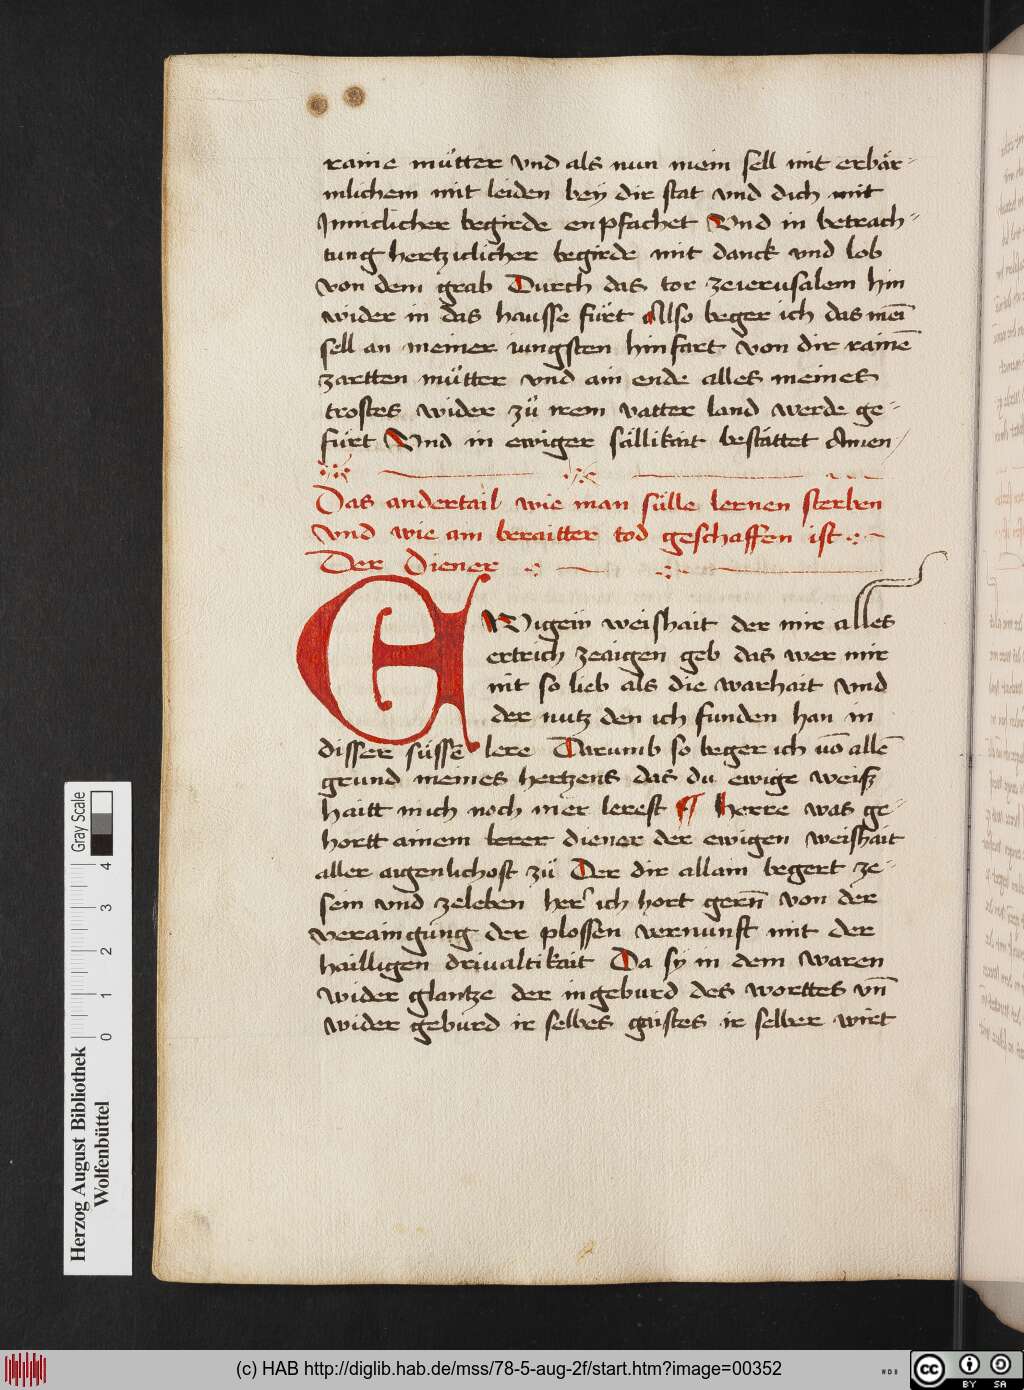 raine mu̇tter vnd als nun mein sell mit erbär-
mlichem mit leiden bey dir stat vnd dich mit
Jnniclicher begirde enpfachet Vnd in betrach-
tung hertziclicher begirde mit danck vnd lob
von dem grab Durch das tor zeierusalem hin
wider in das hausse fürt Also beger ich das mei̅
sell an meiner iungsten hinfart von dir raine̅
zartten mu̇tter vnd ain ende alles meines
trostes wider zu̇ irem vatter land werde ge-
fürt Vnd in ewiger sällikait bestättet Amen/
Das andertail wie man sülle lernen sterben
vnd wie ain beraitter tod geschaffen ist
Der Diener
EWigein weishait der mir alles
ertrich zeaigen geb das wer mir
nit so lieb als die warhait vnd
der nutz den ich funden han in
disser süsse̅ lere Darumb so beger ich vo̅ alle̅
grund meines hertzens das du ewige weisz
haitt mich noch mer lerest ¶ herre was ge-
hortt ainem lerer diener der ewigen weishait
aller aigenlichost zü Der dir allain begert ze-
sein vnd zeleben her ich hort gern̅ von der
veraingung der plossen vernunft mit der
hailligen drivaltikait Da sy in dem waren
wider glantze der ingeburd des worttes vn̅
wider geburd ir selbes gaistes ir selber wirt
Herzog August Bibliothek
Wolfenbüttel
Gray Scale
0 1 2 3 4
(c) HAB http://diglib.hab.de/mss/78-5-aug-2f/start.htm?image=00352
WDB
cc BY SA